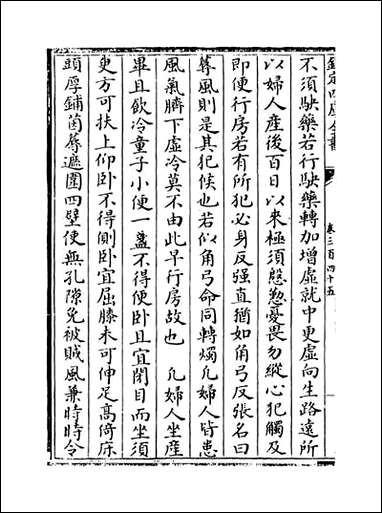 欽定四庫全書
卷三百四十五
不須駃藥若行駃藥轉加增虛就中更虛向生路遠所
以婦人產後百日以來極須慇懃憂畏勿縱心犯觸及
即便行房若有所犯必身反强直猶如角弓反張名曰
蓐風則是其犯候也若似角弓命同轉燭凡婦人皆患
風氣臍下虛冷莫不由此早行房故也　凡婦人坐產
畢且飲冷童子小便一盞不得便卧且宜閉目而坐須
㬰方可扶上仰卧不得側卧宜屈膝未可伸足高倚床
頭厚鋪茵蓐遮圍四壁使無孔隙免被賊風兼時時令